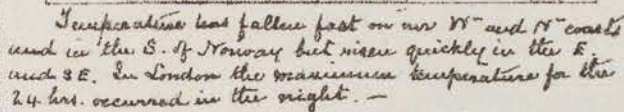 Temperature has fallen fast on our Wn and Nn coasts
and in the S. of Norway but risen quickly in the E.
and SE. In London the maximum temperature for the
24 hrs. occurred in the night. —